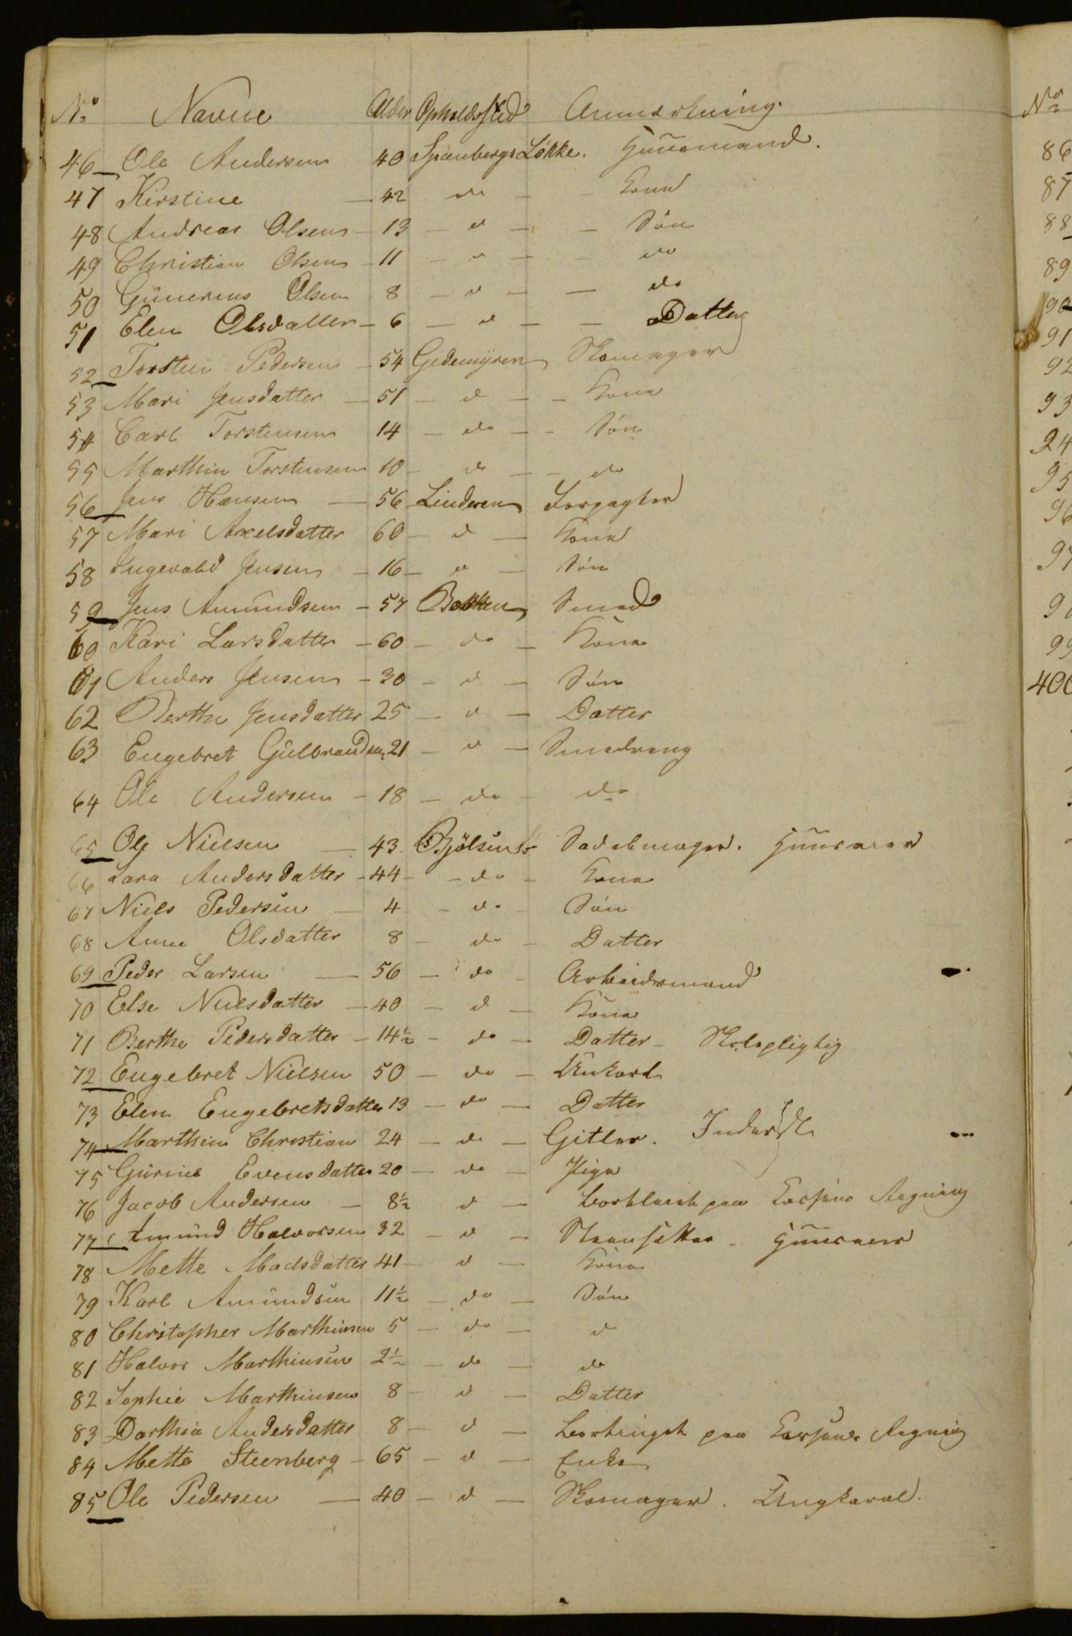 No Navne Alder Opholdssted Anmærkning.
46 Ole Andersen 40 Spanbergs Løkke. Huusmand.
47 Kirstine — 42 do — Kone
48 Andreas Olsen — 13 — d — — Søn
49 Christian Olsen — 11 — d — — do
50 Gunerius Olsen 8 — d — — do
51 Elen Olsdatter — 6 — d — — Datter
52 Torsten Pedersen — 54 Gedemyren Skomager
53 Mari Jensdatter — 51 — d — — Kone
54 Carl Torstensen 14 — do — — Søn
55 Marthin Torstensen 10 — do — — do
56 Jens Hansen — 56 Linderen Forpagter
57 Mari Axelsdatter 60 — d — Kone
58 Ingevald Jensen — 16 — d — Søn
59 Jens Amundsen — 57 Bakken Smed
60 Kari Larsdatter — 60 — do — Kone
61 Anders Jensen — 30 — d — Søn
62 Berthe Jensdatter 25 — d — Datter
63 Engebret Gulbrandsen 21 — d — Smedreng
64 Ole Andersen — 18 — do — do
65 Ole Nielsen — 43 Bjølsund Sadelmager. Huusarer
66 Lara Andersdatter — 44 — do — Kone
67 Niels Pedersen — 4 — do Søn
68 Anne Olsdatter 8 — do — Datter
69 Peder Larsen — 56 — do — Arbeidsmand
70 Else Nielsdatter — 40 — d — Kone
71 Berthe Pedersdatter — 14½ — do — Datter — Skolepligtig
72 Engebret Nielsen 50 — do — Unkarl
73 Elen Engebretsdatter 13 — do — Datter
74 Marthin Christian 24 — do — Gitler. Inderst
75 Gurine Evensdatter 20 — do — Pige
76 Jacob Andersen — 8½ d — paa Kassens Regning
77 Amund Halvorsen 32 — d —
78 Mette Madsdatter 41 — d — Kone
79 Karl Amundsen 11½ — do — Søn
80 Christopher Marthinsen 5 — do — d
81 Halvor Marthinsen 2½ — do — do
82 Sophie Marthinsen 8 — d — Datter
83 Dorthea Andersdatter 8 — d — Bortsingst paa Kassens Regning
84 Mette Steenberg — 65 — d — Enke
85 Ole Pedersen — 40 — d — Skomager. Ungkarl.
No
86
87
88
89
90
91
92
93
94
95
96
97
99
400